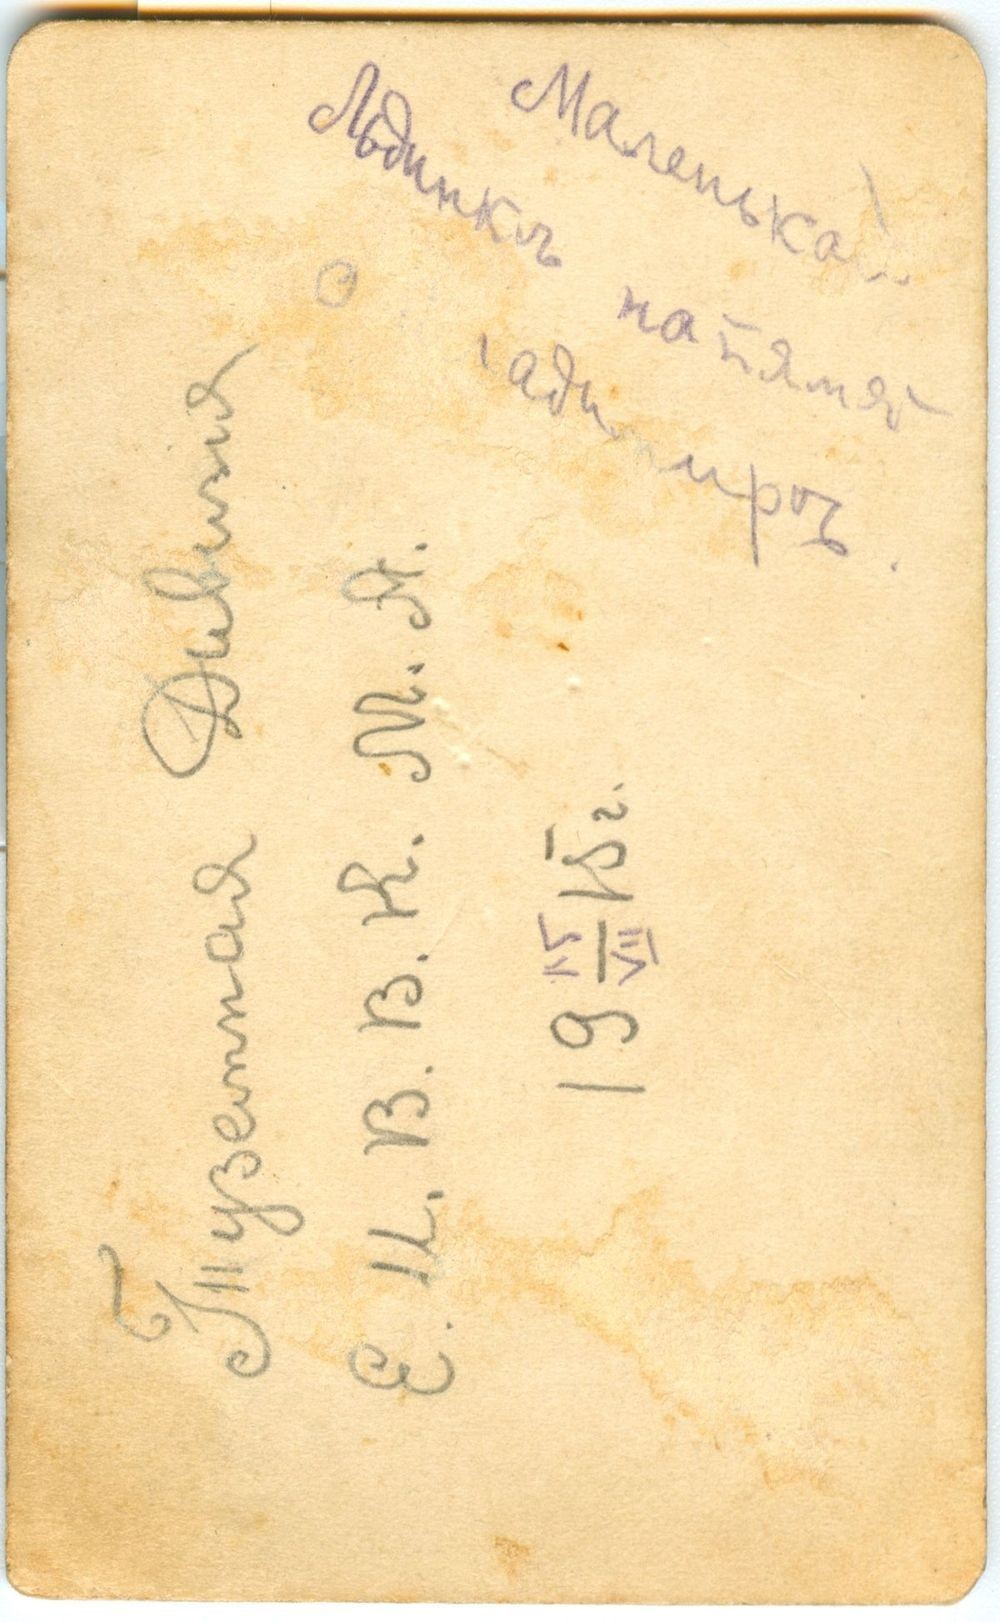 Маленькой
Льдинкѣ на память
Туземная Дивизія
Е. И. В. В. К. М. А.
19 15/VII 15 г.